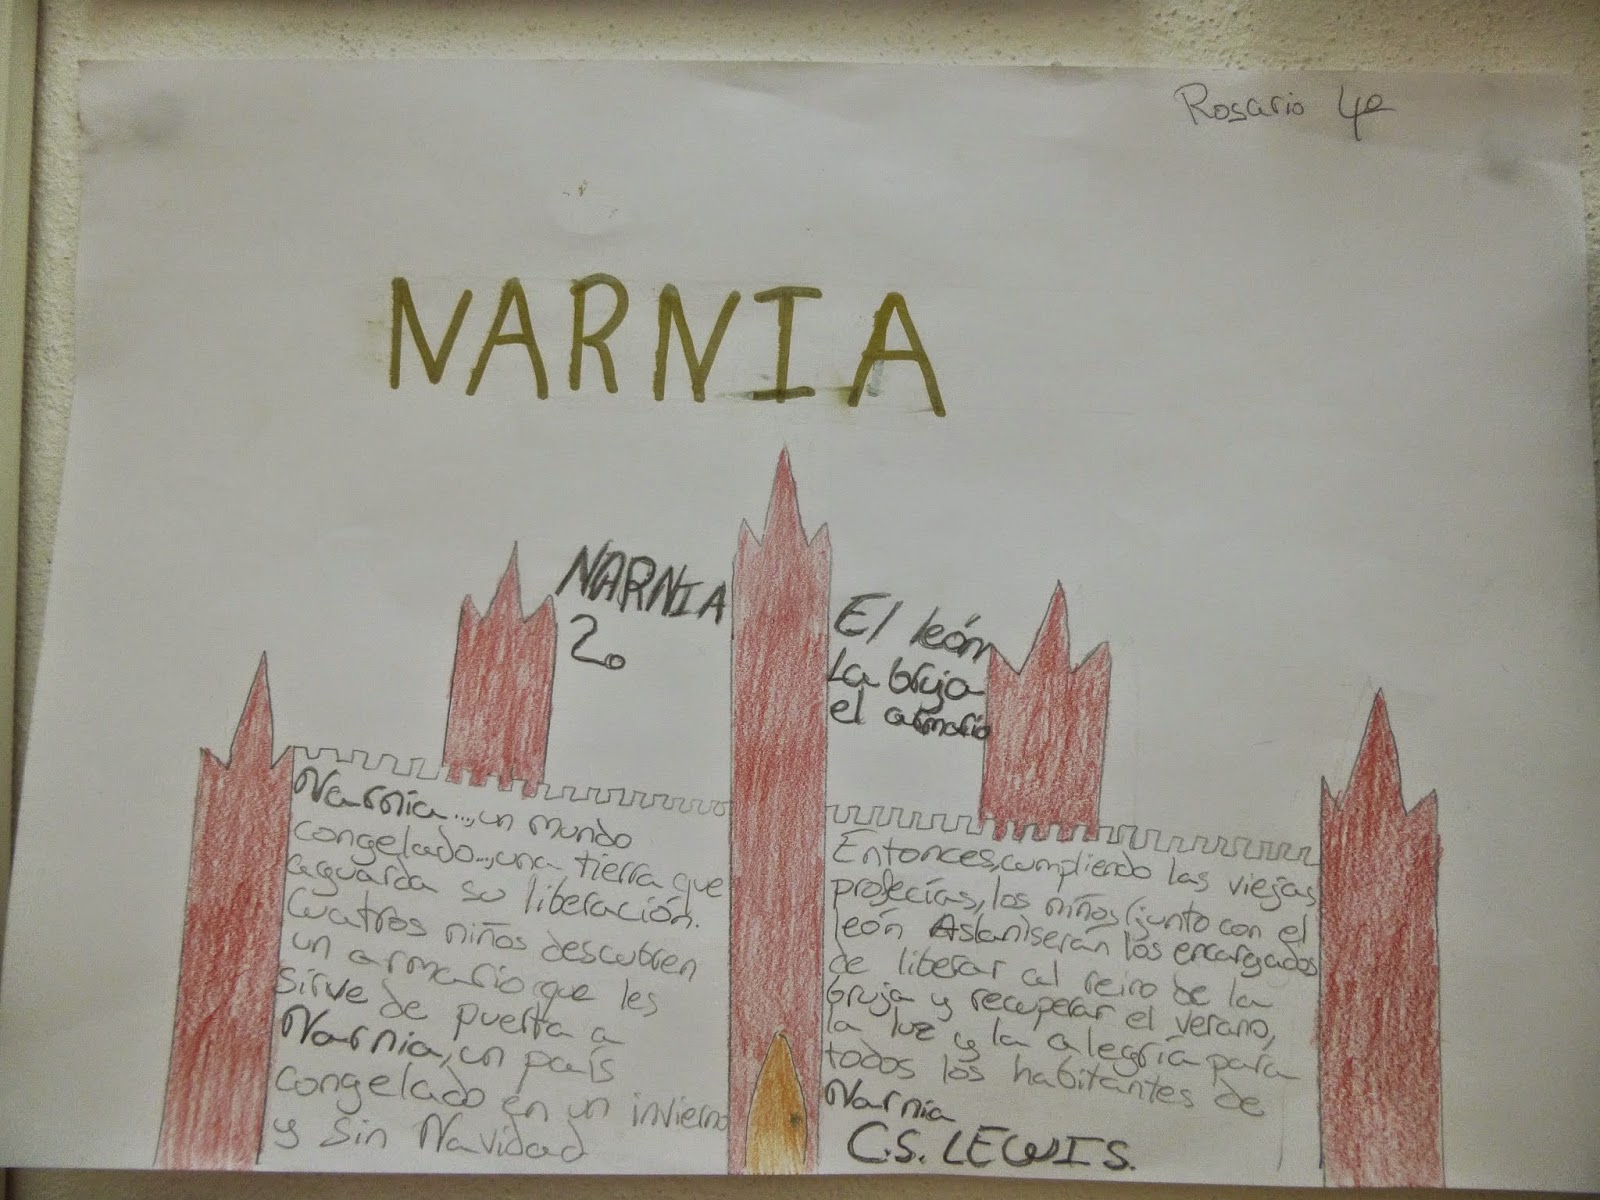 Rosario 4º
NARNIA
NARNIA
2.
El león
La bruja
el armario
Narnia...,un mundo
congelado...,una tierra que
aguarda su liberación.
Cuatros niños descubren
un armario que les
sirve de puerta a
Narnia, un país
congelado en un invierno
y sin Navidad
Entonces,cumpliendo las viejas
profecías, los niños (junto con el
león Aslan)serán los encargados
de liberar al reino de la
bruja y recuperar el verano,
la luz y la alegría para
todos los habitantes de
Narnia
C.S. LEWIS.